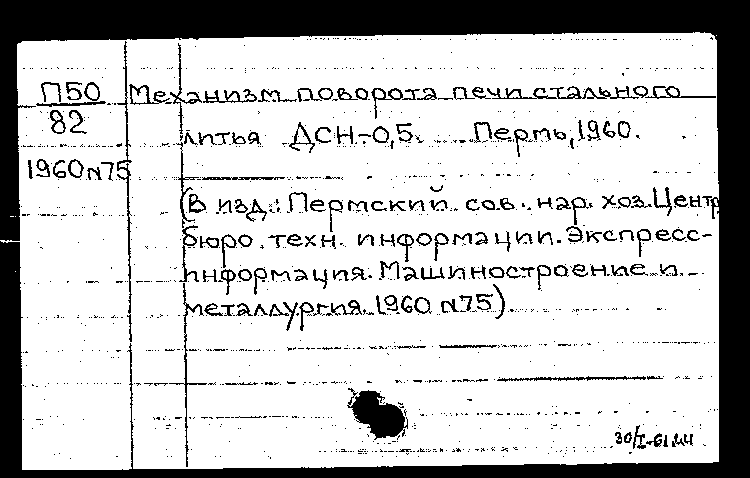 П50 Механизм поворота печи стального
82 литья ДСН-0,5. Пермь, 1960.
1960 N75
(В изд.: Пермский сов. нар. хоз. Центр
бюро техн. информации. Экспресс-
информация. Машиностроение и
металлургия. 1960 N75)
30/I-61 мч